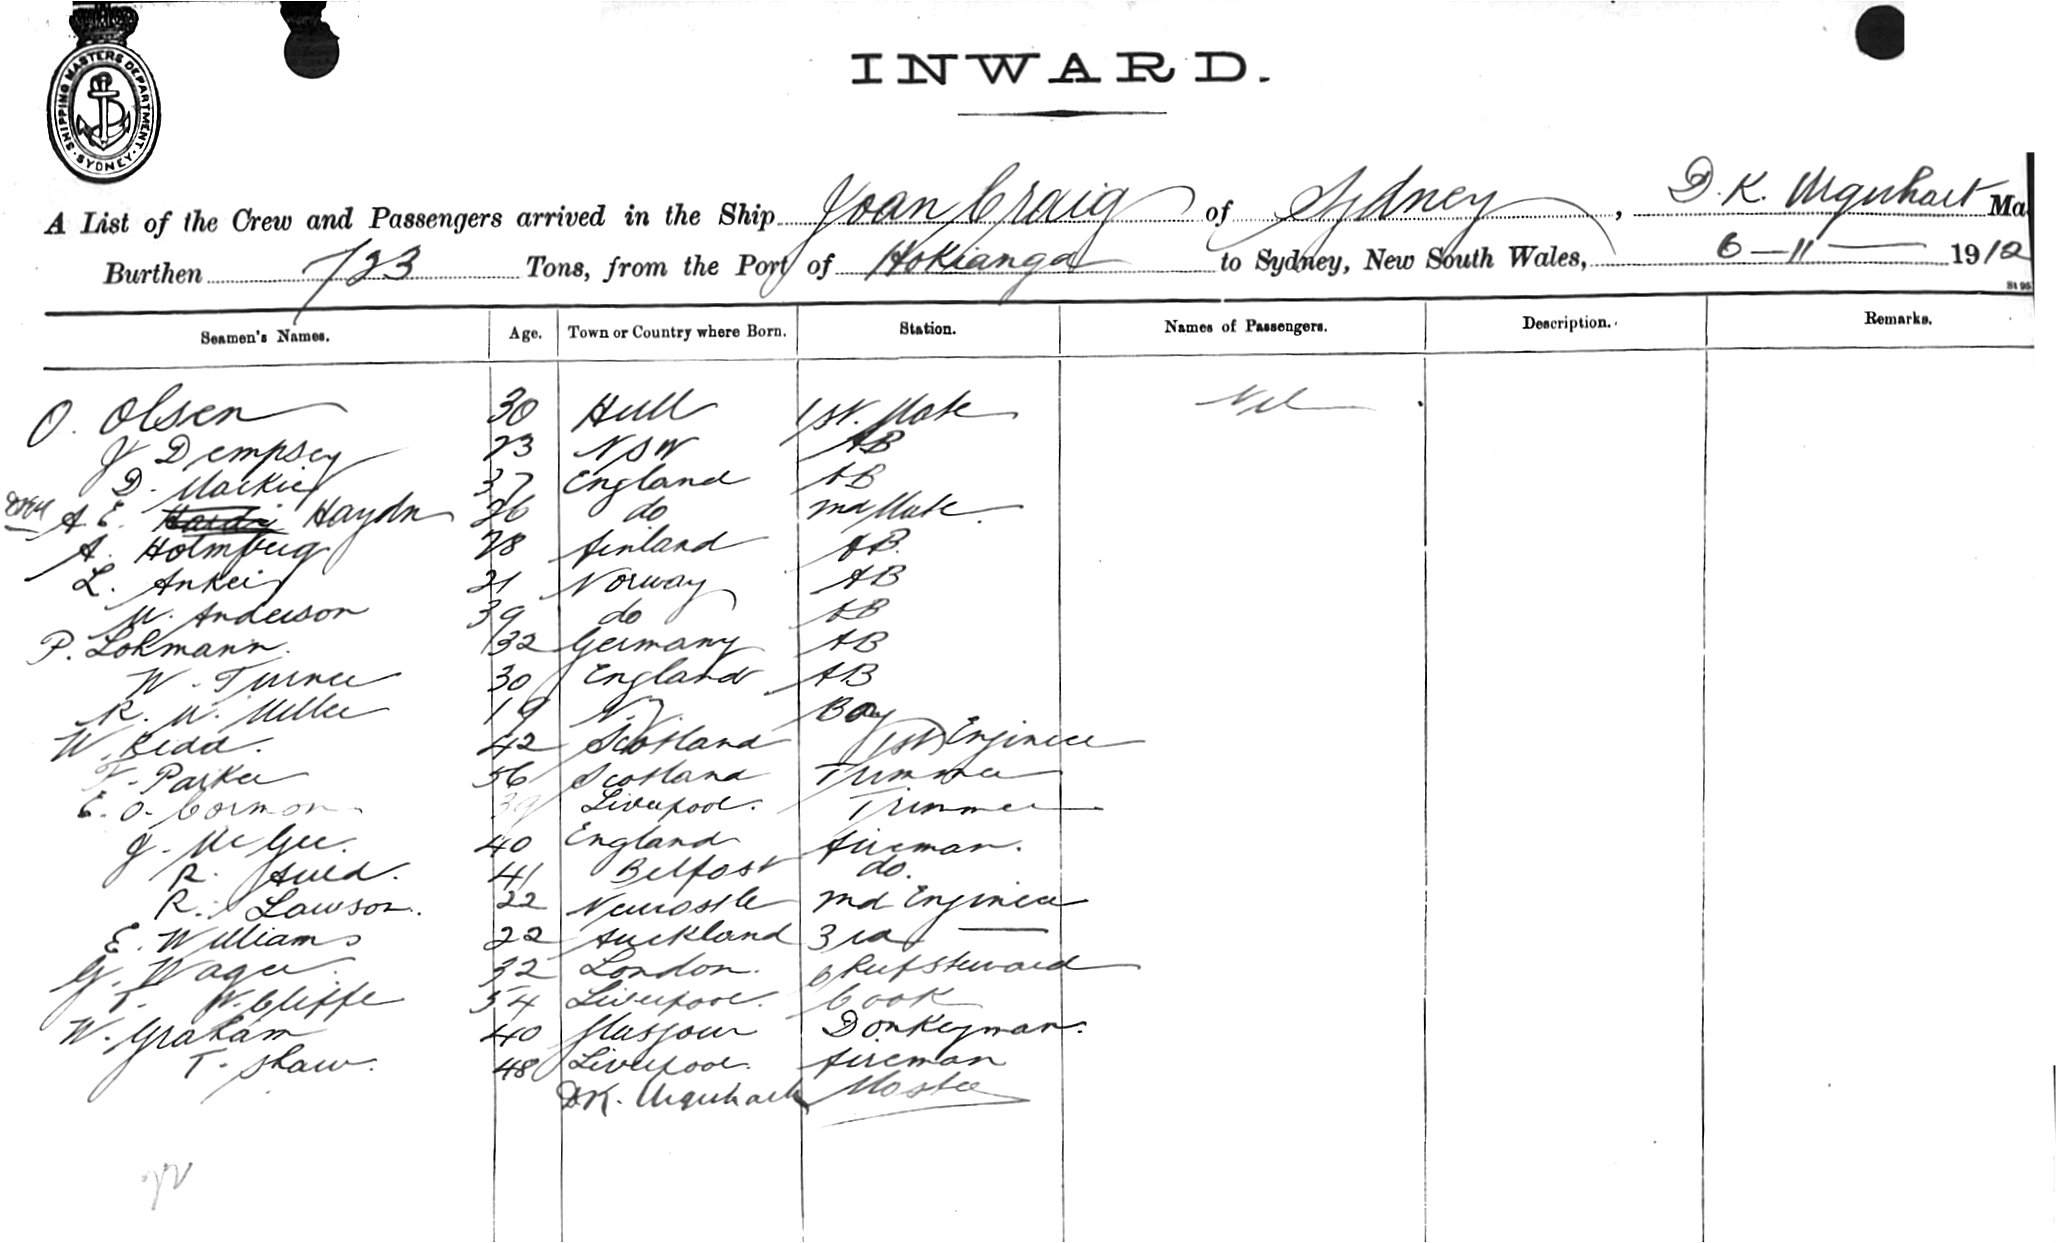 SHIPPING MASTERS DEPARTMENT. SYDNEY.
INWARD.
A List of the Crew and Passengers arrived in the Ship Joan Craig of Sydney, D. K. Urquhart Ma
Burthen 723 Tons, from the Port of Hokianga to Sydney, New South Wales, 6-11- 1912
Seamen's Names. Age. Town or Country where Born. Station. Names of Passengers. Description. Remarks.
O. Olsen 30 Hull 1st. Mate Nil
J Dempsey 23 NSW AB
D. Mackie 37 England AB
A E. Haydn 26 do 2nd Mate
A. Holmberg 28 Finland AB.
L. Ankei 21 Norway AB
M. Anderson 39 do AB
P. Lohmann. 32 Germany AB
W. Turner 30 England AB
R. M. Miller 19 N.Z. Boy
W. Kidd. 42 Scotland 1st Engineer
F. Parker 56 Scotland Trimmer
E. O. Cormon 39 Liverpool. Trimmer
J. McGee. 40 England Fireman.
R. Auld. 41 Belfast do.
R. Lawson. 22 Newcastle 2nd Engineer
E. Williams 22 Auckland 3rd
G. Wager 32 London. Chief Steward
T. W. Cliffe 54 Liverpool. Cook
W. Graham 40 Glasgow Donkeyman.
T. Shaw. 48 Liverpool. Fireman
D.K. Urquhart Master